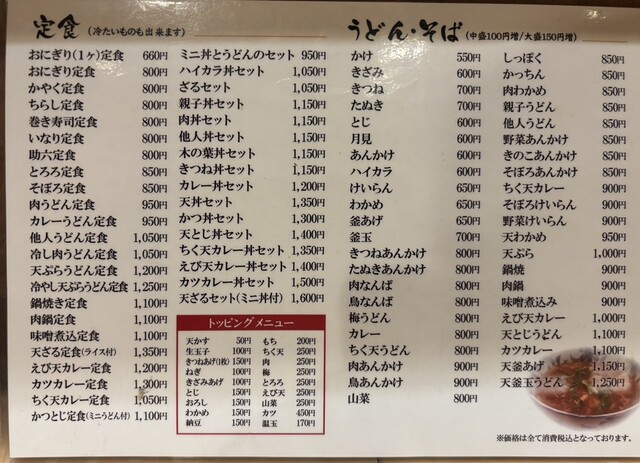 定食 (冷たいものも出来ます)
おにぎり(1ヶ)定食 660円
おにぎり定食 800円
かやく定食 800円
ちらし定食 800円
巻き寿司定食 800円
いなり定食 800円
助六定食 800円
とろろ定食 850円
そぼろ定食 850円
肉うどん定食 950円
カレーうどん定食 950円
他人うどん定食 1,050円
冷し肉うどん定食 1,050円
天ぷらうどん定食 1,200円
冷やし天ぷらうどん定食 1,250円
鍋焼き定食 1,100円
肉鍋定食 1,100円
味噌煮込定食 1,100円
天ざる定食(ライス付) 1,350円
えび天カレー定食 1,200円
カツカレー定食 1,300円
ちく天カレー定食 1,050円
かつとじ定食(ミニうどん付) 1,100円
ミニ丼とうどんのセット 950円
ハイカラ丼セット 1,050円
ざるセット 1,050円
親子丼セット 1,150円
肉丼セット 1,150円
他人丼セット 1,150円
木の葉丼セット 1,150円
きつね丼セット 1,150円
カレー丼セット 1,200円
天丼セット 1,350円
かつ丼セット 1,300円
天とじ丼セット 1,400円
ちく天カレー丼セット 1,350円
えび天カレー丼セット 1,400円
カツカレー丼セット 1,500円
天ざるセット(ミニ丼付) 1,600円
トッピングメニュー
天かす 50円
生玉子 100円
きつねあげ(1枚) 150円
ねぎ 100円
きざみあげ 100円
とじ 150円
おろし 150円
わかめ 150円
納豆 150円
もち 200円
ちく天 250円
肉 250円
梅 250円
とろろ 250円
えび天 250円
山菜 250円
カツ 450円
温玉 170円
うどん・そば (中盛100円増/大盛150円増)
かけ 550円
きざみ 600円
きつね 700円
たぬき 700円
とじ 600円
月見 600円
あんかけ 600円
ハイカラ 600円
けいらん 700円
わかめ 650円
釜あげ 650円
釜玉 700円
きつねあんかけ 800円
たぬきあんかけ 800円
肉なんば 800円
鳥なんば 800円
梅うどん 800円
カレー 800円
ちく天うどん 800円
肉あんかけ 900円
鳥あんかけ 900円
山菜 800円
しっぽく 850円
かっちん 850円
肉わかめ 850円
親子うどん 850円
他人うどん 850円
野菜あんかけ 850円
きのこあんかけ 850円
そぼろあんかけ 850円
ちく天カレー 900円
そぼろけいらん 900円
野菜けいらん 900円
天わかめ 950円
天ぷら 1,000円
鍋焼 900円
肉鍋 900円
味噌煮込み 900円
えび天カレー 1,000円
天とじうどん 1,100円
カツカレー 1,100円
天釜あげ 1,150円
天釜玉うどん 1,250円
※価格は全て消費税込となっております。